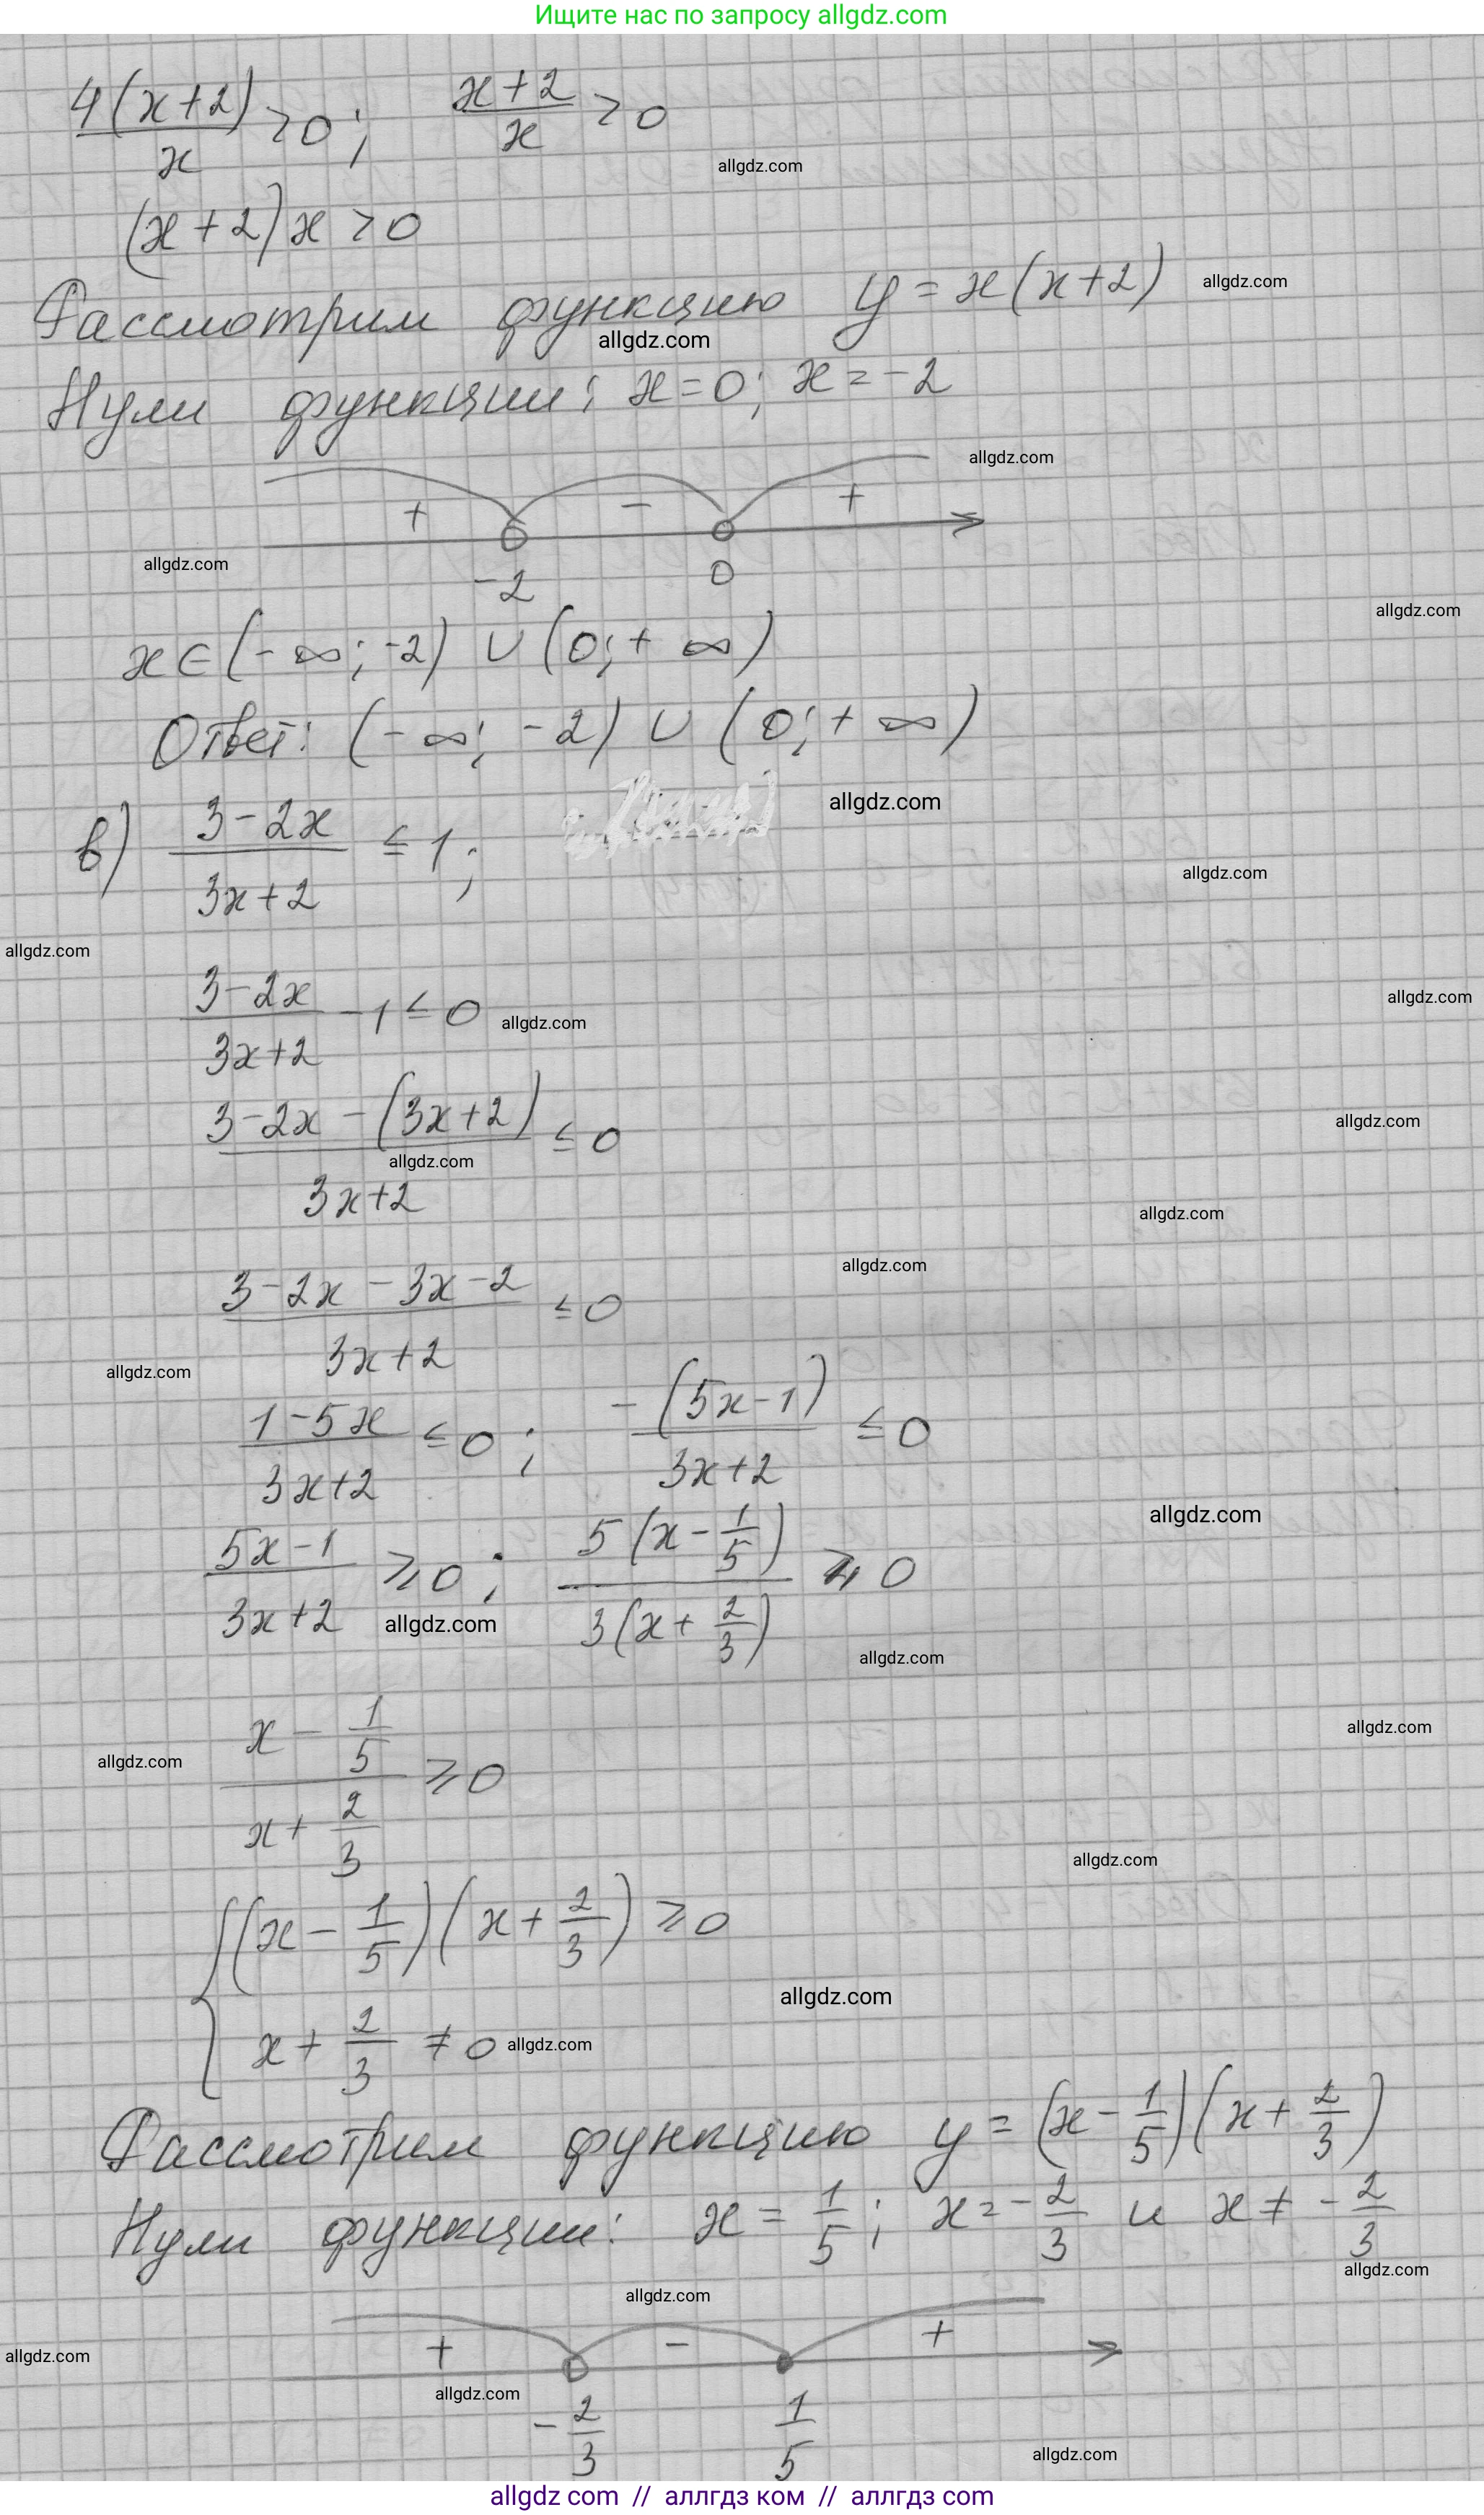 Ищите нас по запросу allgdz.com
4(x+2)/x > 0; (x+2)/x > 0
allgdz.com
(x+2)x > 0
Рассмотрим функцию y = x(x+2)
allgdz.com
allgdz.com
Нули функции: x=0; x=-2
allgdz.com
+ - +
allgdz.com
-2 0
allgdz.com
x∈(-∞; -2) ∪ (0; +∞)
Ответ: (-∞; -2) ∪ (0; +∞)
allgdz.com
в) (3-2x)/(3x+2) ≤ 1;
allgdz.com
allgdz.com
(3-2x)/(3x+2) - 1 ≤ 0
allgdz.com
allgdz.com
(3-2x-(3x+2))/(3x+2) ≤ 0
allgdz.com
allgdz.com
allgdz.com
allgdz.com
(3-2x-3x-2)/(3x+2) ≤ 0
allgdz.com
(1-5x)/(3x+2) ≤ 0; -(5x-1)/(3x+2) ≤ 0
allgdz.com
(5x-1)/(3x+2) ≥ 0; 5(x-1/5)/3(x+2/3) ≥ 0
allgdz.com
allgdz.com
allgdz.com
allgdz.com
(x-1/5)/(x+2/3) ≥ 0
allgdz.com
{(x-1/5)(x+2/3) ≥ 0
allgdz.com
x+2/3 ≠ 0
allgdz.com
Рассмотрим функцию y = (x-1/5)(x+2/3)
Нули функции: x = 1/5; x=-2/3 и x ≠ -2/3
allgdz.com
allgdz.com
+ - +
allgdz.com
allgdz.com
-2/3 1/5
allgdz.com
allgdz com // аллгдз ком // аллгдз com